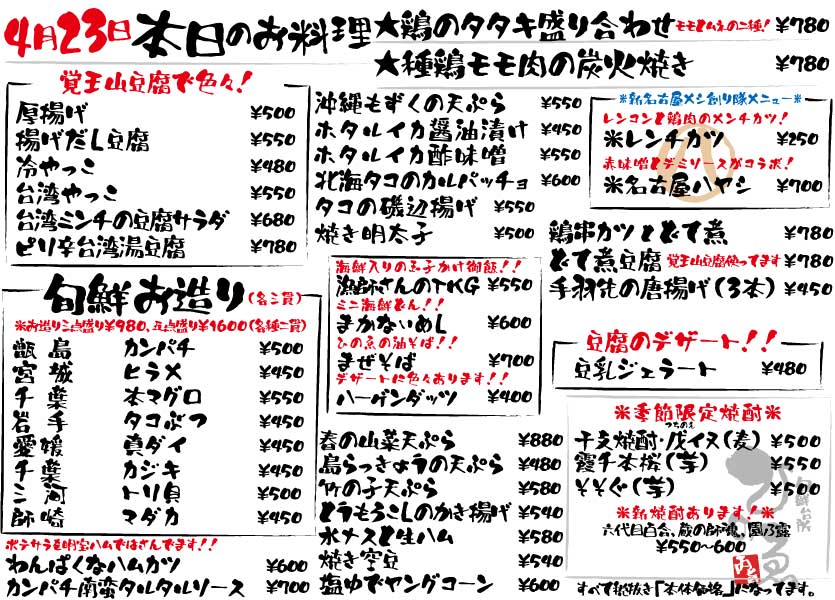 4月23日 本日のお料理
★鶏のタタキ盛り合わせ モモとムネの二種! ¥780
★種鶏モモ肉の炭火焼き ¥780
覚王山豆腐で色々!
厚揚げ ¥500
揚げだし豆腐 ¥550
冷やっこ ¥480
台湾やっこ ¥550
台湾ミンチの豆腐サラダ ¥680
ピリ辛台湾湯豆腐 ¥780
旬鮮お造り(名三貫)
※お造り三点盛り¥980、五点盛り¥1600(各種二貫)
甑島 カンパチ ¥500
宮城 ヒラメ ¥450
千葉 本マグロ ¥550
岩手 タコぶつ ¥450
愛媛 真ダイ ¥450
千葉 カジキ ¥450
三河 トリ貝 ¥500
師崎 マダカ ¥450
ポテサラを明宝ハムではさんでます!!
わんぱくなハムカツ ¥600
カンパチ南蛮タルタルソース ¥700
沖縄もずくの天ぷら ¥550
ホタルイカ醤油漬け ¥450
ホタルイカ酢味噌 ¥550
北海タコのカルパッチョ ¥600
タコの磯辺揚げ ¥550
焼き明太子 ¥500
海鮮入りの玉子かけ御飯!!
漁師さんのTKG ¥550
ミニ海鮮どん!!
まかないめし ¥600
ひの魚の油そば!!
まぜそば ¥700
デザートに色々あります!!
ハーゲンダッツ ¥400
春の山菜天ぷら ¥880
島らっきょうの天ぷら ¥480
竹の子天ぷら ¥580
とうもろこしのかき揚げ ¥540
水ナスと生ハム ¥580
焼き空豆 ¥540
塩ゆでヤングコーン ¥600
※新名古屋メシ創り隊メニュー※
レンコンと鶏肉のメンチカツ!
※レンチカツ ¥250
赤味噌とデミソースがコラボ!
※名古屋ハヤシ ¥700
鶏串カツとどて煮 ¥780
どて煮豆腐 覚王山豆腐使ってます ¥780
手羽先の唐揚げ(3本) ¥450
豆腐のデザート!!
豆乳ジェラート ¥480
※季節限定焼酎※
つちのえ
干支焼酎・戊イヌ(麦) ¥500
霞千本桜(芋) ¥550
そそぐ(芋) ¥500
※新焼酎あります!※
六代目百合、蔵の師魂、園乃露
¥550~600
すべて税抜き「本体価格」になってます。